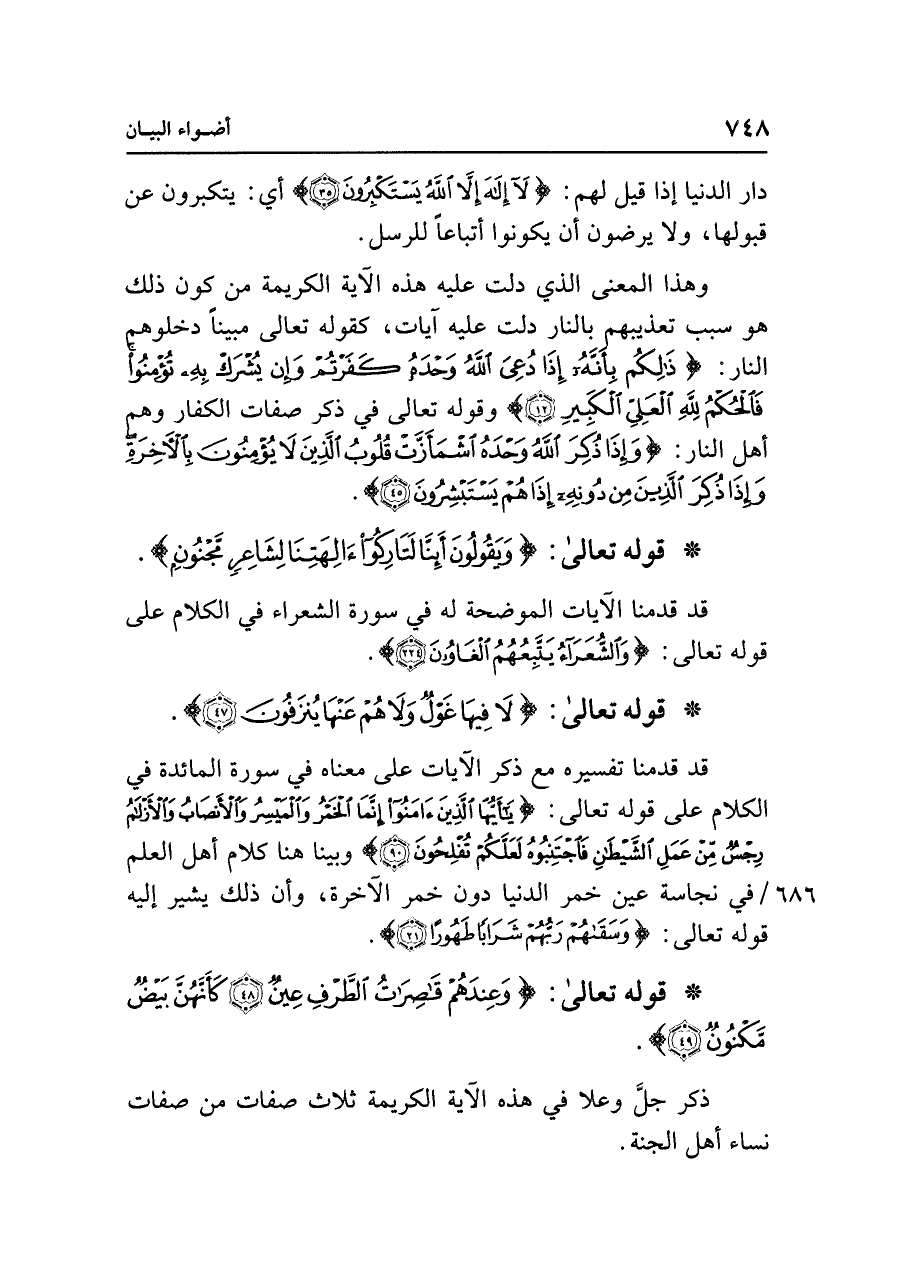 ٧٤٨ أضواء البيان
دار الدنيا إذا قيل لهم: ﴿ لَآ إِلَٰهَ إِلَّا ٱللَّهُ يَسۡتَكۡبِرُونَ ٣٥﴾ أي: يتكبرون عن
قبولها، ولا يرضون أن يكونوا أتباعاً للرسل.
وهذا المعنى الذي دلت عليه هذه الآية الكريمة من كون ذلك
هو سبب تعذيبهم بالنار دلت عليه آيات، كقوله تعالى مبيناً دخلوهم
النار: ﴿ ذَٰلِكُم بِأَنَّهُۥٓ إِذَا دُعِيَ ٱللَّهُ وَحۡدَهُۥ كَفَرۡتُمۡ وَإِن يُشۡرَكۡ بِهِۦ تُؤۡمِنُواْۚ
فَٱلۡحُكۡمُ لِلَّهِ ٱلۡعَلِيِّ ٱلۡكَبِيرِ ١٢﴾ وقوله تعالى في ذكر صفات الكفار وهم
أهل النار: ﴿ وَإِذَا ذُكِرَ ٱللَّهُ وَحۡدَهُ ٱشۡمَأَزَّتۡ قُلُوبُ ٱلَّذِينَ لَا يُؤۡمِنُونَ بِٱلۡأٓخِرَةِۖ
وَإِذَا ذُكِرَ ٱلَّذِينَ مِن دُونِهِۦٓ إِذَا هُمۡ يَسۡتَبۡشِرُونَ ٤٥﴾ .
* قوله تعالىٰ: ﴿ وَيَقُولُونَ أَئِنَّا لَتَارِكُوٓاْ ءَالِهَتِنَا لِشَاعِرٖ مَّجۡنُونِۭ ﴾ .
قد قدمنا الآيات الموضحة له في سورة الشعراء في الكلام على
قوله تعالى: ﴿ وَٱلشُّعَرَآءُ يَتَّبِعُهُمُ ٱلۡغَاوُۥنَ ٢٢٤﴾ .
* قوله تعالىٰ: ﴿ لَا فِيهَا غَوۡلٞ وَلَا هُمۡ عَنۡهَا يُنزَفُونَ ٤٧﴾ .
قد قدمنا تفسيره مع ذكر الآيات على معناه في سورة المائدة في
الكلام على قوله تعالى: ﴿ يَٰٓأَيُّهَا ٱلَّذِينَ ءَامَنُوٓاْ إِنَّمَا ٱلۡخَمۡرُ وَٱلۡمَيۡسِرُ وَٱلۡأَنصَابُ وَٱلۡأَزۡلَٰمُ
رِجۡسٞ مِّنۡ عَمَلِ ٱلشَّيۡطَٰنِ فَٱجۡتَنِبُوهُ لَعَلَّكُمۡ تُفۡلِحُونَ ٩٠﴾ وبينا هنا كلام أهل العلم
٦٨٦/ في نجاسة عين خمر الدنيا دون خمر الآخرة، وأن ذلك يشير إليه
قوله تعالى: ﴿ وَسَقَىٰهُمۡ رَبُّهُمۡ شَرَابٗا طَهُورًا ٢١﴾ .
* قوله تعالىٰ: ﴿ وَعِندَهُمۡ قَٰصِرَٰتُ ٱلطَّرۡفِ عِينٞ ٤٨ كَأَنَّهُنَّ بَيۡضٞ
مَّكۡنُونٞ ٤٩﴾ .
ذكر جلَّ وعلا في هذه الآية الكريمة ثلاث صفات من صفات
نساء أهل الجنة.